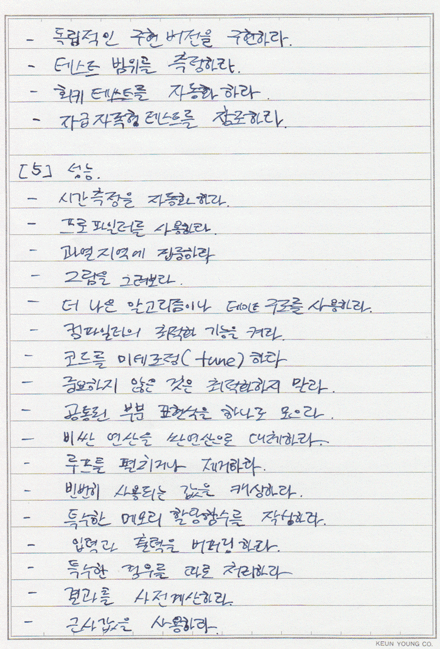 - 독립적인 구현 버전을 구현하라.
- 테스트 범위를 측정하라.
- 회귀 테스트를 자동화 하라.
- 자급자족형 테스트를 창조하라.
[5] 성능.
- 시간측정을 자동화 하라.
- 프로파일러를 사용하라.
- 과열지역에 집중하라
- 그림을 그려보라.
- 더 나은 알고리즘이나 데이터 구조를 사용하라.
- 컴파일러의 최적화 기능을 켜라.
- 코드를 미세조정(tune) 하라
- 중요하지 않은 것은 최적화하지 말라.
- 공통된 부분 표현식을 하나로 모으라.
- 비싼 연산을 싼연산으로 대체하라.
- 루프를 펼치거나 제거하라.
- 빈번히 사용되는 값을 캐싱하라.
- 특수한 메모리 할당함수를 작성하라.
- 입력과 출력을 버퍼링 하라.
- 특수한 경우를 따로 처리하라
- 결과를 사전계산하라.
- 근사값을 사용하라.
KEUN YOUNG CO.